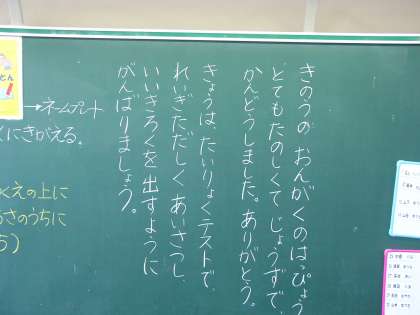 きのうの おんがくのはっぴょう
とてもたのしくて じょうずで、
かんどうしました。ありがとう。
きょうは、たいりょくテストで、
れいぎただしく あいさつし、
いいきろくを出すように
がんばりましょう。
→ネームプレート
にきがえる。
くえの上に
さのうちに